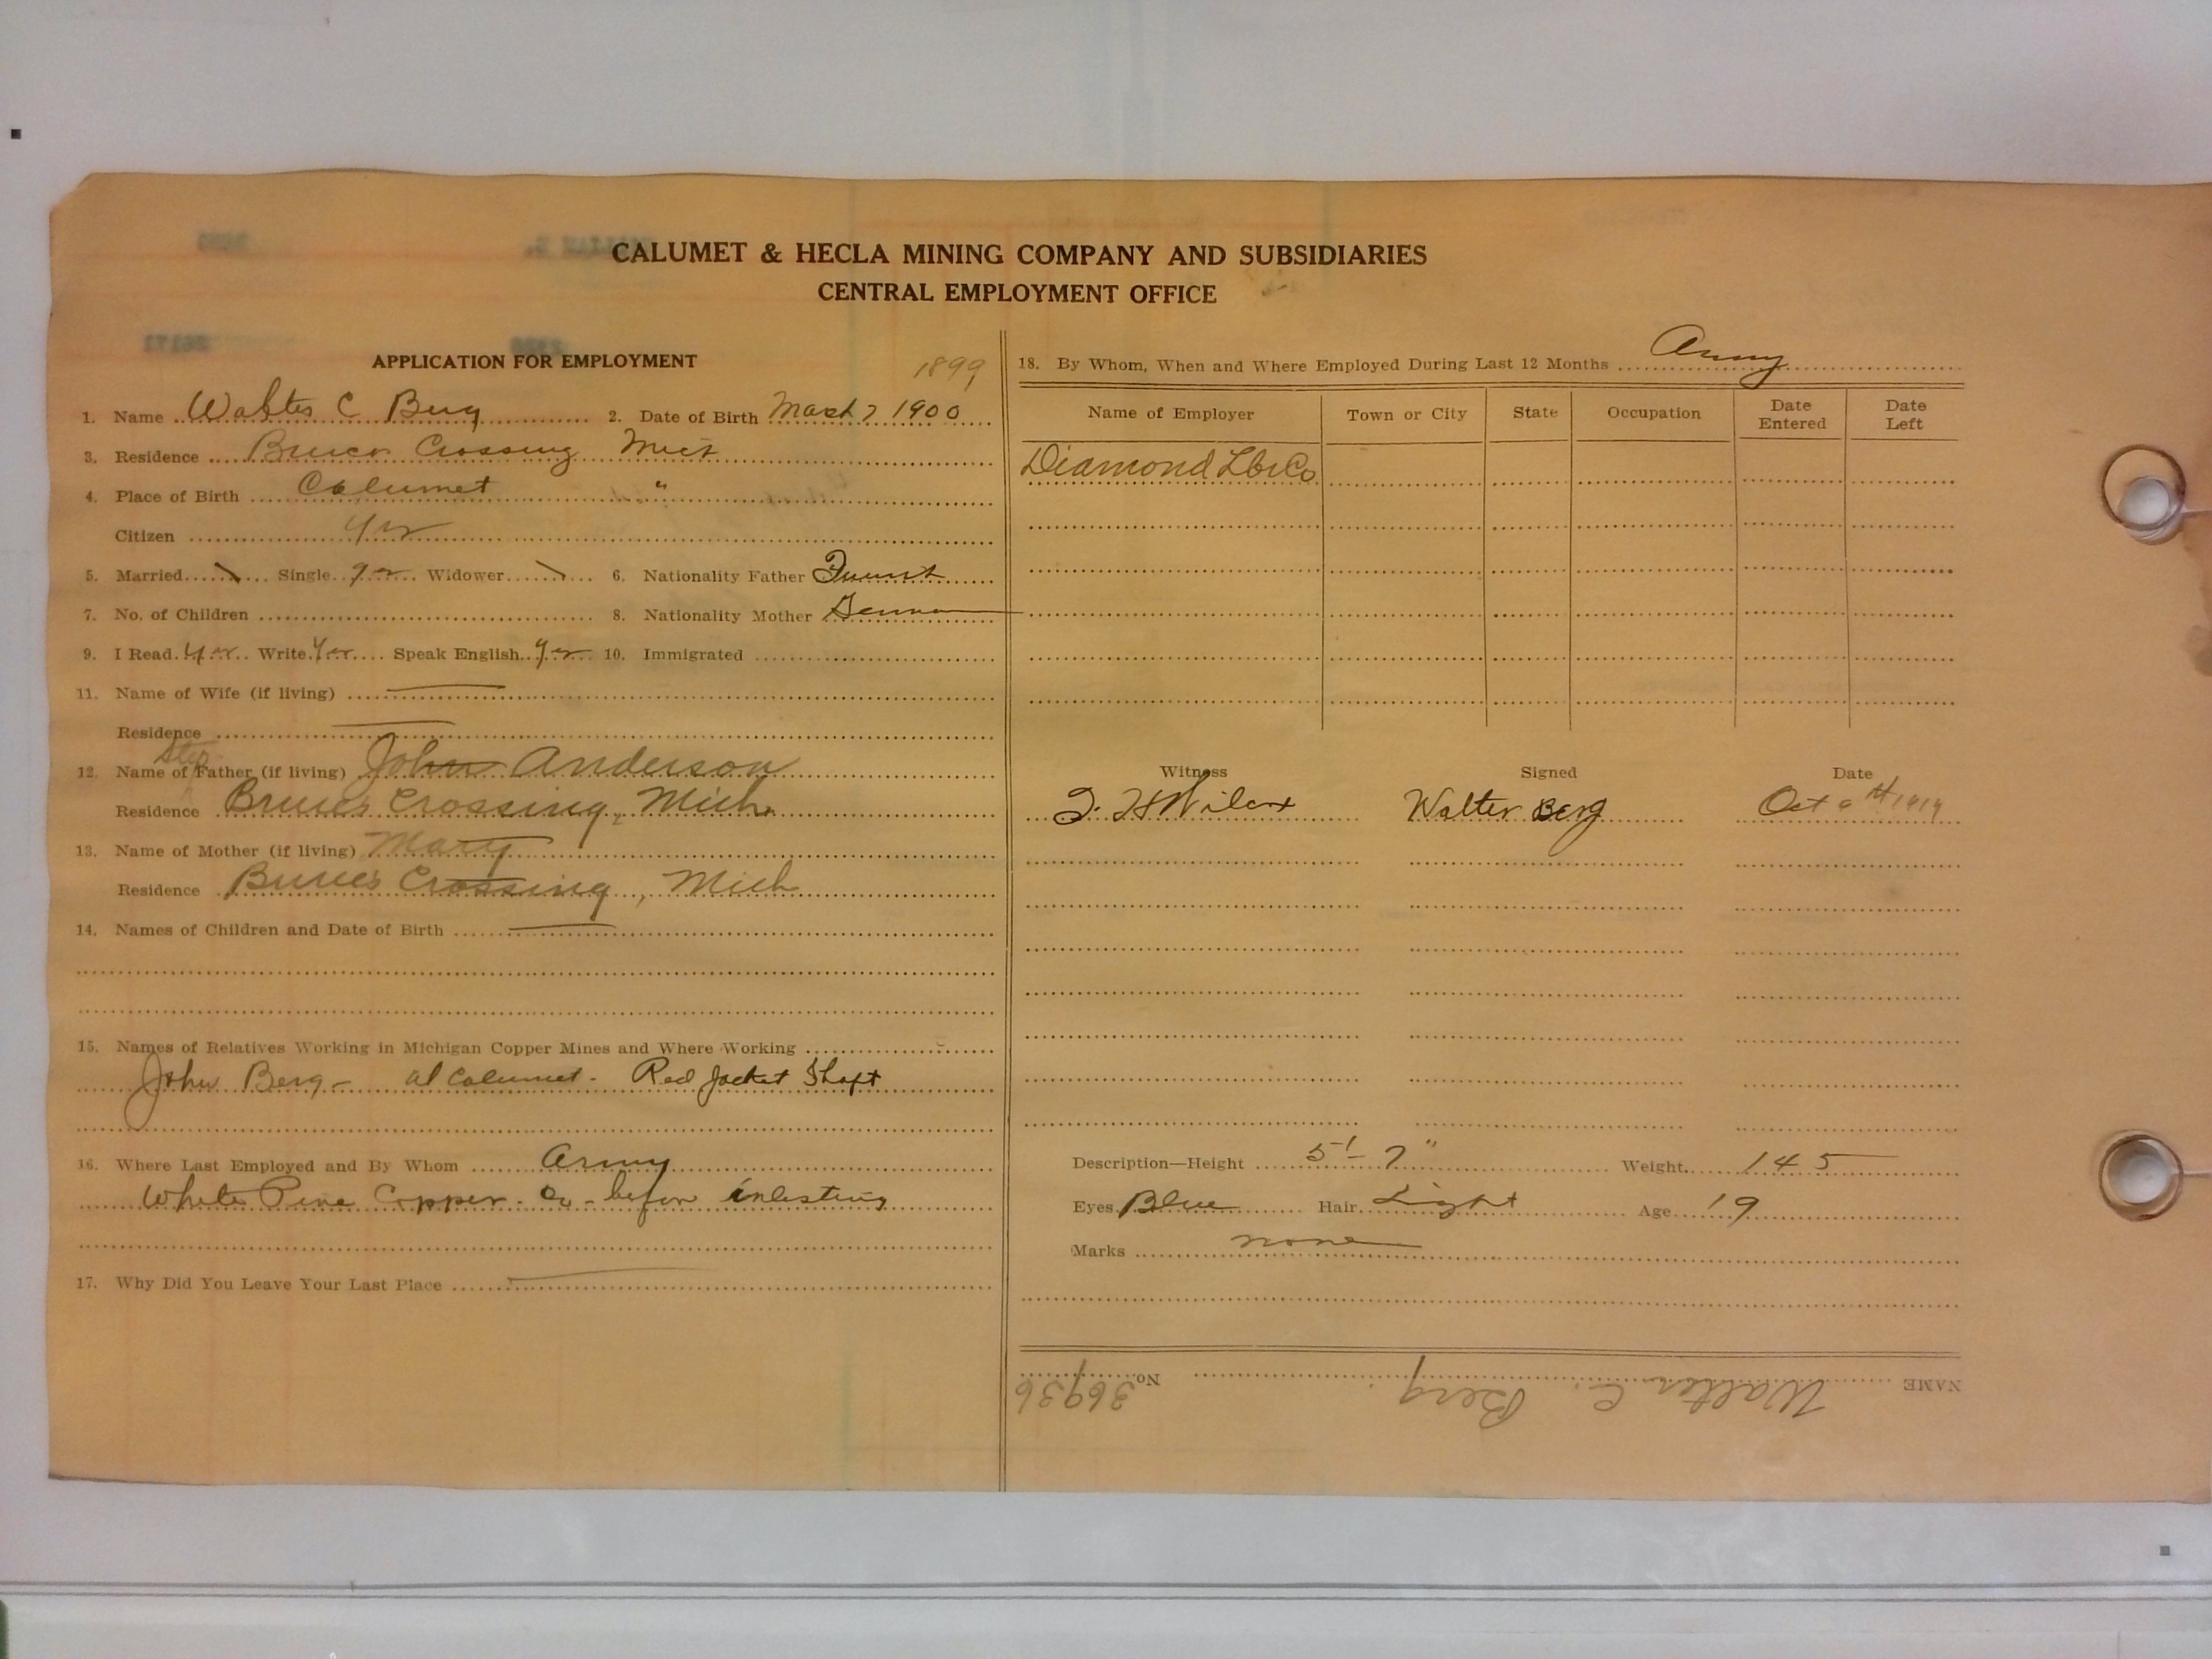 CALUMET & HECLA MINING COMPANY AND SUBSIDIARIES
CENTRAL EMPLOYMENT OFFICE
APPLICATION FOR EMPLOYMENT
1899
1. Name Walter C Berg 2. Date of Birth March 7 1900
3. Residence Bruces Crossing Mich
4. Place of Birth Calumet "
Citizen Yes
5. Married \ Single Yes Widower \ 6. Nationality Father
7. No. of Children 8. Nationality Mother German
9. I Read Yes Write Yes Speak English Yes 10. Immigrated
11. Name of Wife (if living)
Residence
12. Name of Step Father (if living) John Anderson
Residence Bruces Crossing, Mich.
13. Name of Mother (if living) Mary
Residence Bruces Crossing, Mich
14. Names of Children and Date of Birth
15. Names of Relatives Working in Michigan Copper Mines and Where Working
John Berg - at Calumet - Red Jacket Shaft
16. Where Last Employed and By Whom Army
White Pine Copper Co - before inlisting
17. Why Did You Leave Your Last Place
18. By Whom, When and Where Employed During Last 12 Months Army
Name of Employer Town or City State Occupation Date Entered Date Left
Diamond Lbr Co
Witness Signed Date
Wilcox Walter Berg Oct 1919
Description—Height 5' - 7" Weight 145
Eyes Blue Hair Light Age 19
Marks none
NAME Walter C. Berg. No. 36936